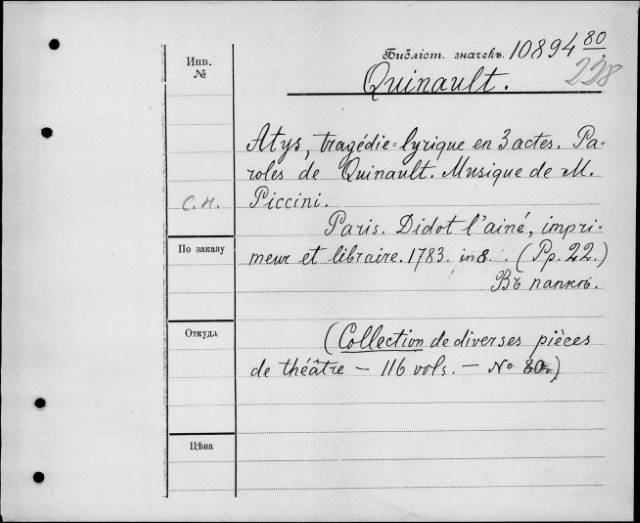 Инв.
№
Библіот. значекъ. 10894 80
228
Quinault.
Atys, tragédie=lyrique en 3 actes. Pa-
roles de Quinault. Musique de M.
С.П. Piccini.
Paris. Didot l'ainé, impri-
По заказу
meur et libraire. 1783. in 8. (Pp. 22.)
Въ папкѣ.
Откуда
(Collection de diverses pièces
de théâtre — 116 vols. — No 80.)
Цѣна